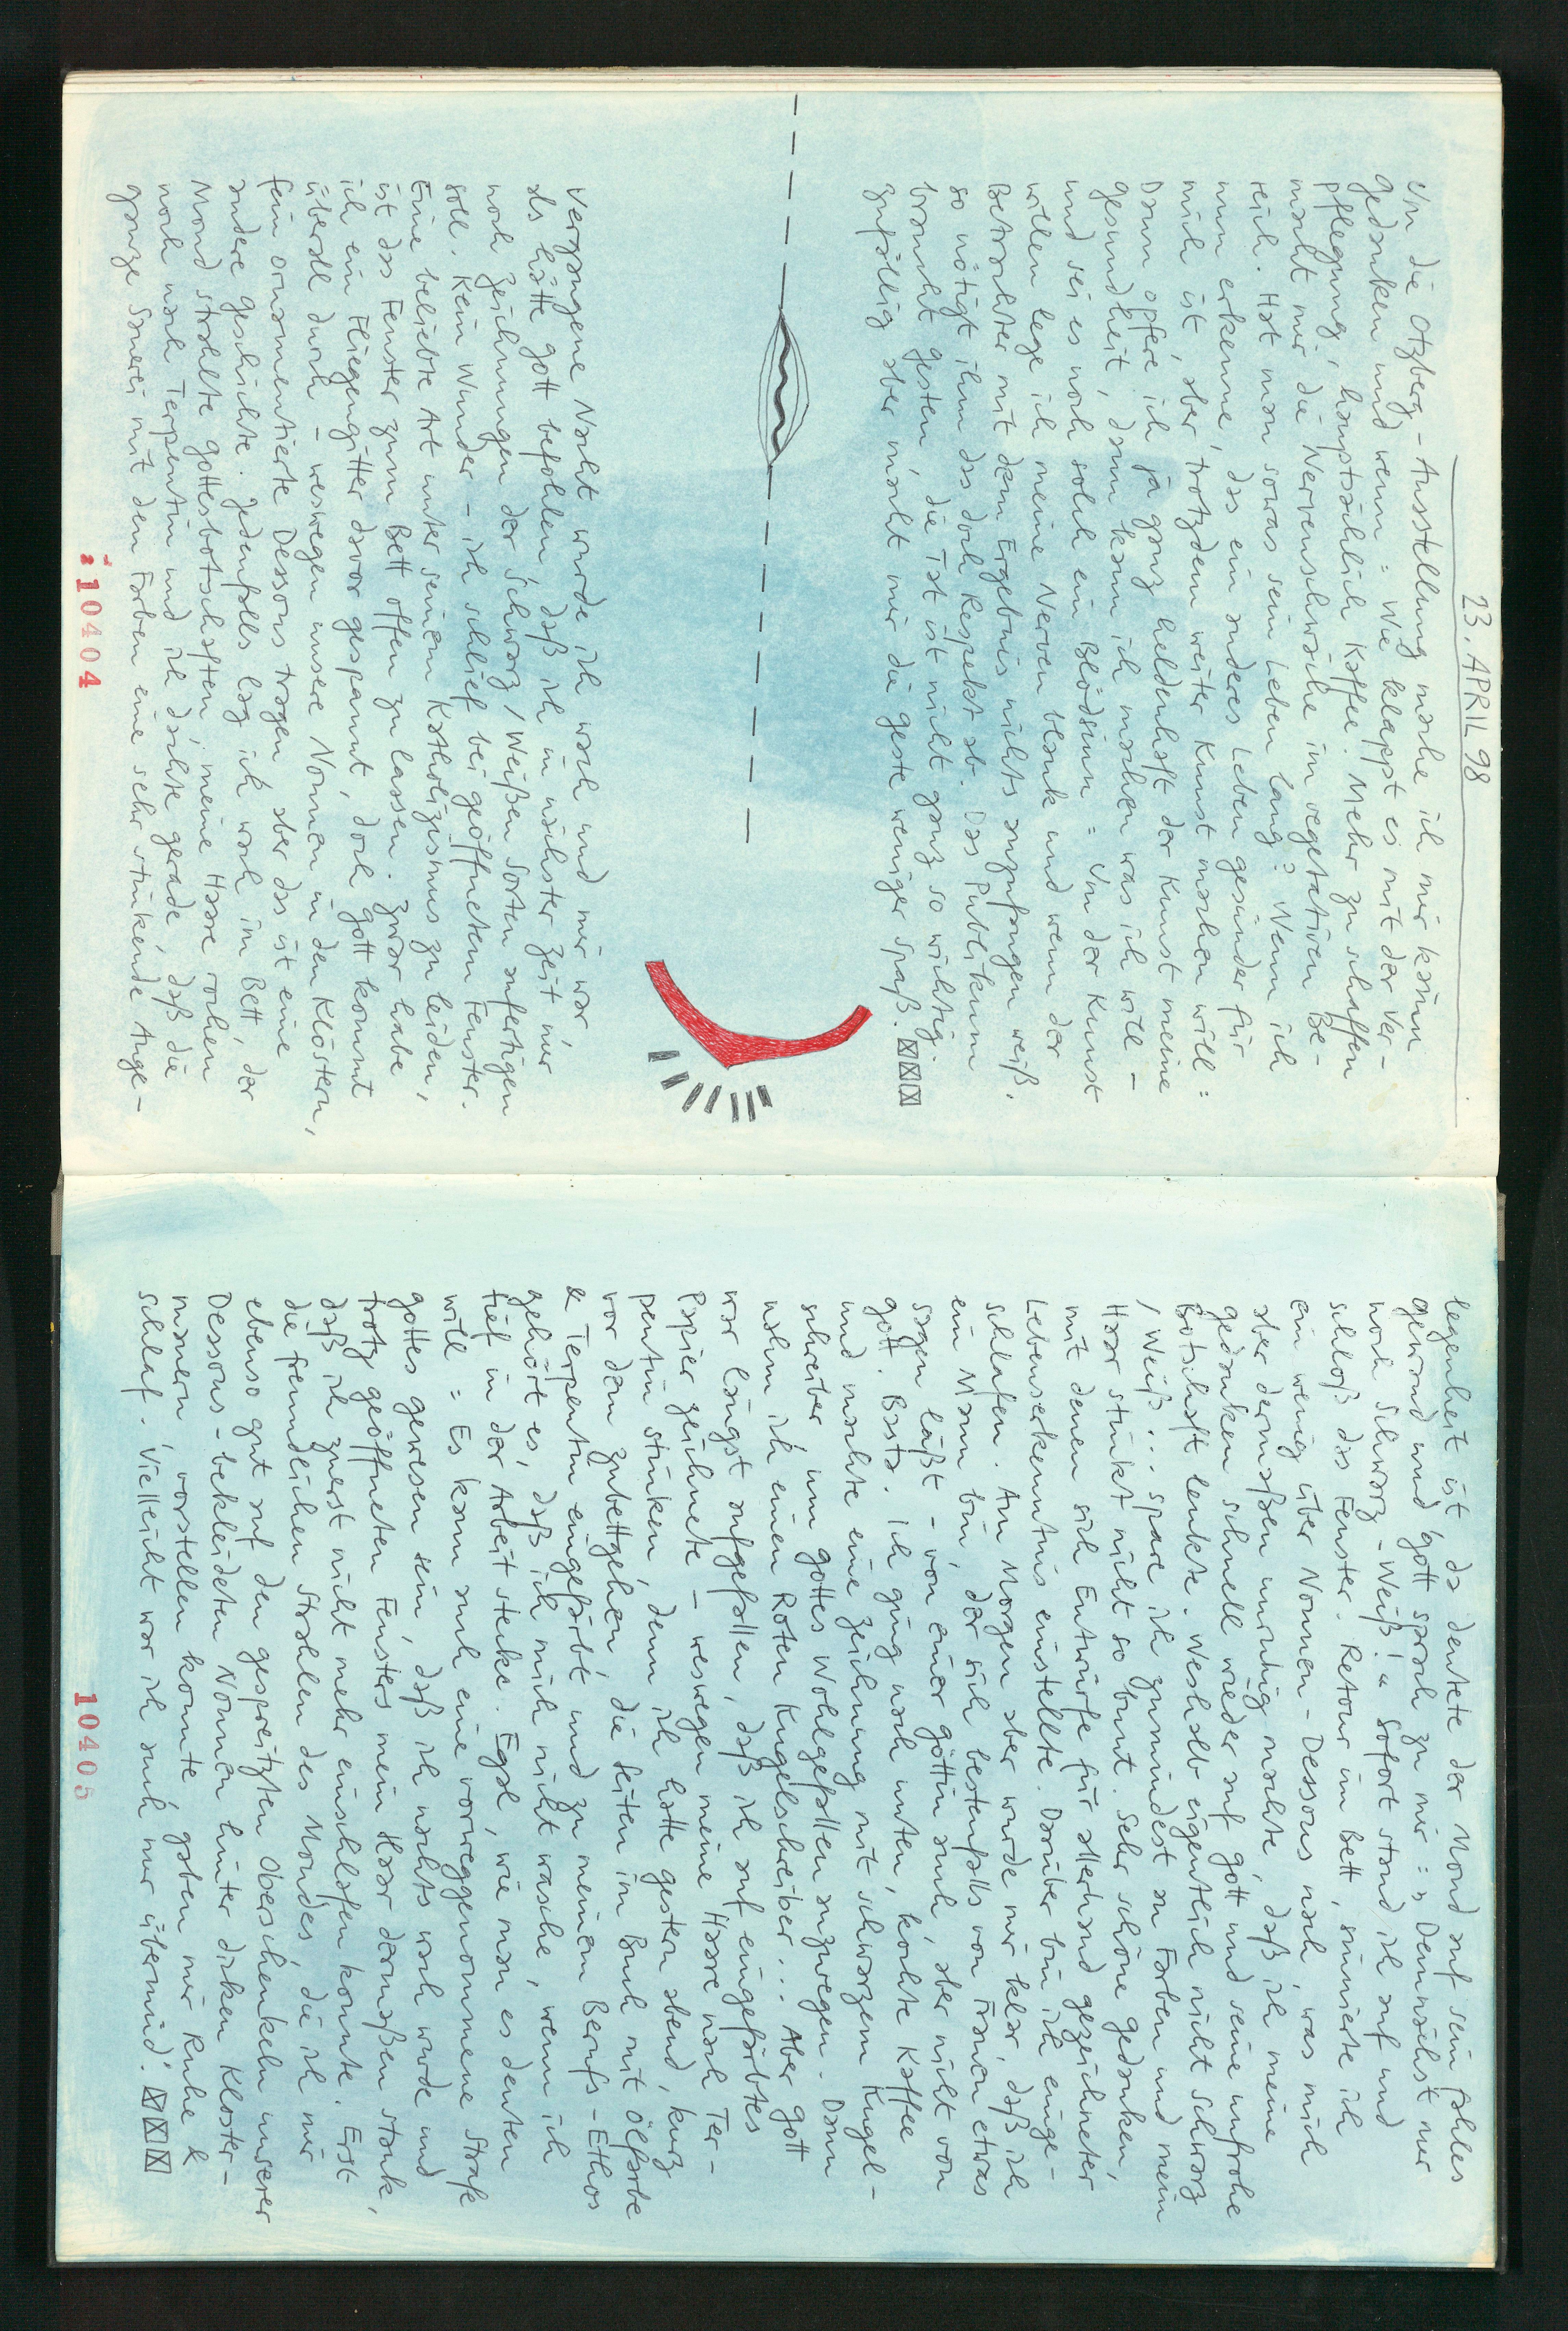 23. APRIL 98
Um die Otzberg-Ausstellung mache ich mir kaum
Gedanken und wenn: Wie klappt es mit der Ver-
pflegung, hauptsächlich Kaffee. Mehr zu schaffen
macht mir die Nervenschwäche im vegetativen Be-
reich. Hat man sowas sein Leben lang? Wenn ich
nun erkenne, das ein anderes Leben gesünder für
mich ist, aber trotzdem weiter Kunst machen will:
Dann opfere ich ja ganz heldenhaft der Kunst meine
Gesundheit, dann kann ich machen was ich will -
und sei es noch solch ein Blödsinn: Um der Kunst
willen lege ich meine Nerven blank und wenn der
Betrachter mit dem Ergebnis nichts anzufangen weiß,
so nötigt ihm das doch Respekt ab. Das Publikum
braucht Gesten, die Tat ist nicht ganz so wichtig.
Zufällig aber macht mir die Geste weniger Spaß. ☒☒☒
Vergangene Nacht wurde ich wach und mir war
als hätte Gott befohlen, daß ich in nächster Zeit nur
noch Zeichnungen der Schwarz/Weißen Sorten anfertigen
soll. Kein Wunder - ich schlief bei geöffnetem Fenster.
Eine beliebte Art unter seinem Katholizismus zu leiden,
ist das Fenster zum Bett offen zu lassen. Zwar habe
ich ein Fliegengitter davor gespannt, doch Gott kommt
überall durch - weswegen unsere Nonnen in den Klöstern,
fein ornamentierte Dessous tragen aber das ist eine
andere Geschichte. Jedenfalls lag ich wach im Bett, der
Mond strahlte Gottesbotschaften, meine Haare rochen
noch nach Terpentin und ich dachte gerade, daß die
ganze Sauerei mit den Farben eine sehr stinkende Ange-
10404
legenheit ist, da deutete der Mond auf sein fahles
Gewand und Gott sprach zu mir: „Demnächst nur
noch Schwarz-Weiß!“ Sofort stand ich auf und
schloß das Fenster. Retour im Bett, sinnierte ich
ein wenig über Nonnen-Dessous nach, was mich
aber dermaßen unruhig machte, daß ich meine
Gedanken schnell wieder auf Gott und seine unfrohe
Botschaft lenkte. Weshalb eigentlich nicht Schwarz
/Weiß... spare ich zumindest an Farben und mein
Haar stinkt nicht so bunt. Sehr schöne Gedanken,
mit denen sich Entwürfe für allerhand gezeichneter
Lebenserkenntnis einstellte. Darüber bin ich einge-
schlafen. Am Morgen aber wurde mir klar, daß ich
ein Mann bin, der sich bestenfalls von Frauen etwas
sagen läßt - von einer Göttin auch, aber nicht von
Gott. Basta. Ich ging nach unten, kochte Kaffee
und machte eine Zeichnung mit schwarzem Kugel-
schreiber um Gottes Wohlgefallen anzuregen. Dann
nahm ich einen Roten Kugelschreiber... Aber Gott
war längst aufgefallen, daß ich auf eingefärbtes
Papier zeichnete - weswegen meine Haare nach Ter-
pentin stinken, denn ich hatte gestern abend, kurz
vor dem Zubettgehen, die Seiten im Buch mit Ölfarbe
& Terpentin eingefärbt und zu meinem Berufs-Ethos
gehört es, daß ich mich nicht wasche, wenn ich
tief in der Arbeit stecke. Egal, wie man es deuten
will: Es kann auch eine vorweggenommene Strafe
Gottes gewesen sein, daß ich nachts wach wurde und
trotz geöffneten Fensters mein Haar dermaßen stank,
daß ich zuerst nicht mehr einschlafen konnte. Erst
die freundlichen Strahlen des Mondes, die ich mir
ebenso gut auf den gespreitzten Oberschenkeln unserer
Dessous-bekleideten Nonnen hinter dicken Kloster-
mauern, vorstellen konnte, gaben mir Ruhe &
Schlaf. Vielleicht war ich auch nur übermüd'. ☒☒☒
10405